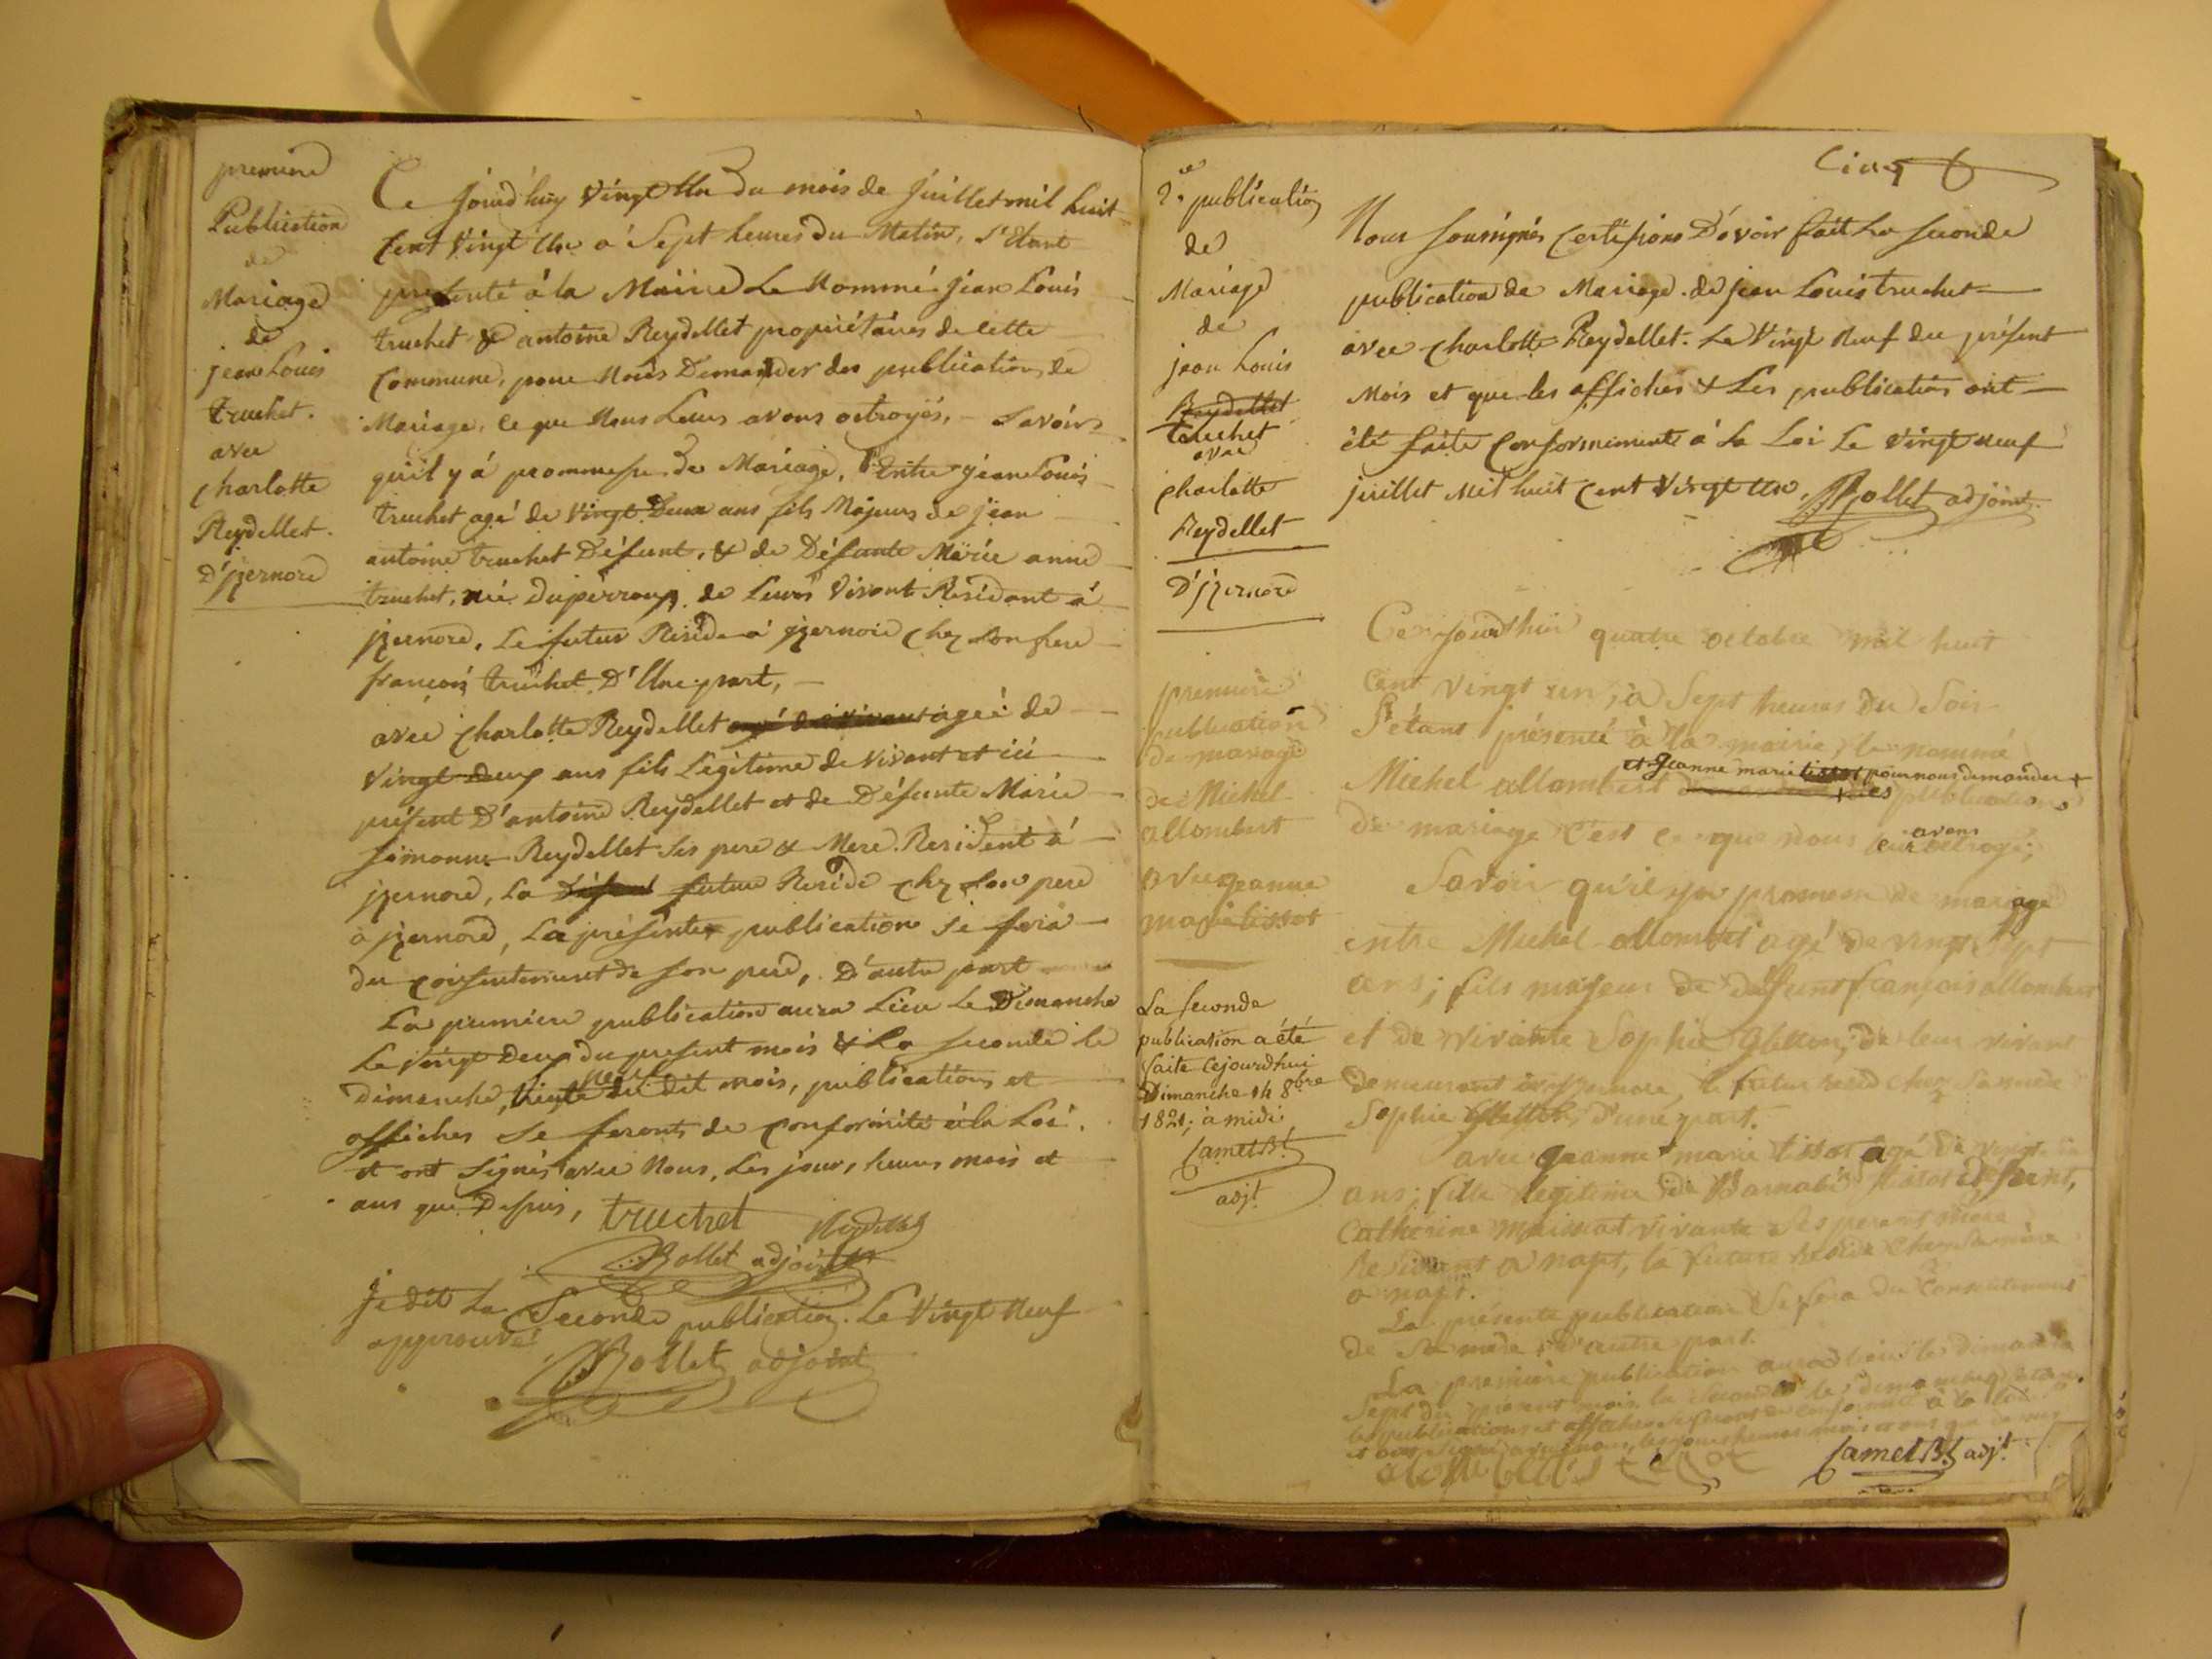 premiere
Publication
de
Mariage
de
jean Louis
truchet.
avec
charlotte
Reydellet.
D'jzernore
Ce jourd'huy Vingt Un du mois de juillet mil huit
Cent Vingt Un a Sept heures du Matin, S'Etant
presenté à la Mairie Le Nommé jean Louis
truchet & antoine Reydellet propriétaires de cette
Commune, pour Nous Demander des publications de
Mariage, ce que Nous Leurs avons octroyés, - Savoirs
qu'il y á prommesse de Mariage, Entre jean Louis
truchet agé de Vingt Deux ans fils Majeurs de jean
antoine truchet Défunt, & de Défunte Marie anne
truchet, née Duperroux, de Leurs Vivant Résidant à
jzernore, Le futur Réside à jzernore chez son frere
françois truchet D'Une part, -
avec charlotte Reydellet agéé de
Vingt deux ans fils Légitime de Vivant et ici
présent D'antoine Reydellet et de Défunte Marie
Simonne Reydellet Ses pere & Mere Resident à
jzernore, La future Reside chez Son pere
à jzernore, La présente publication se fera
du consentement de son pere, D'autre part
La premiere publication aura Lieu Le Dimanche
Le Vingt Deux du present mois & La seconde le
neuf
dimanche, Vingt du dit mois, publications et
affiches se feronts de conformité à la Loi.
et ont Signés avec Nous, Les jour, heures mois et
ans que Dessus, truchet Reydellet
Bollet adjoint
je dit La Seconde publication. Le Vingt Neuf
approuvé
Bollet adjoint
2e publication
de
Mariage
de
jean Louis
Reydellet
truchet
avec
charlotte
Reydellet
D'jzernore
premiere
publication
de mariage
de Michel
allombert
avec jeanne
marie tissot
La seconde
publication a été
faite cejourdhui
Dimanche 14 8bre
1821; à midi
Jamet Bt
adjt
Nous soussignés Certifions D'avoir fait La seconde
publication de Mariage de jean Louis truchet
avec charlotte Reydellet. Le Vingt Neuf du présent
Mois et que les affiches & Les publications ont
été faite Conformements à La Loi Le Vingt neuf
juillet Mil huit Cent Vingt Un. Bollet adjoint.
Ce jourdhui quatre octobre mil huit
Cent vingt un, à Sept heures du Soir
S'étant présenté à la mairie le nommé
et jeanne marie tissot pour nous demander +
Michel allombert + des publications
de mariage c'est ce que nous leur avons octroyé;
Savoir qu'il y a promesse de mariage
entre Michel allombert agé de vingt sept
ans; fils majeur de défunt français allombert
et de vivante Sophie de leur vivant
demeurant le futur reside chez sa mère
Sophie d'une part.
avec jeanne marie tissot agé de vingt
ans; fille légitime de Barnabé tissot défunt,
Catherine vivante Ses pere et mère
Residant a napt, la future Reside chez sa mère
a napt.
La présente publication Se fera du Consentement
de Sa mère d'autre part.
La première publication aura lieu le dimanche
Sept du présent mois, la Seconde le dimanche
les publications et affiches se feront de conformité à la loi
et ont signé avec nous, les jour heures mois et ans que dessus
Jamet Bt adjt